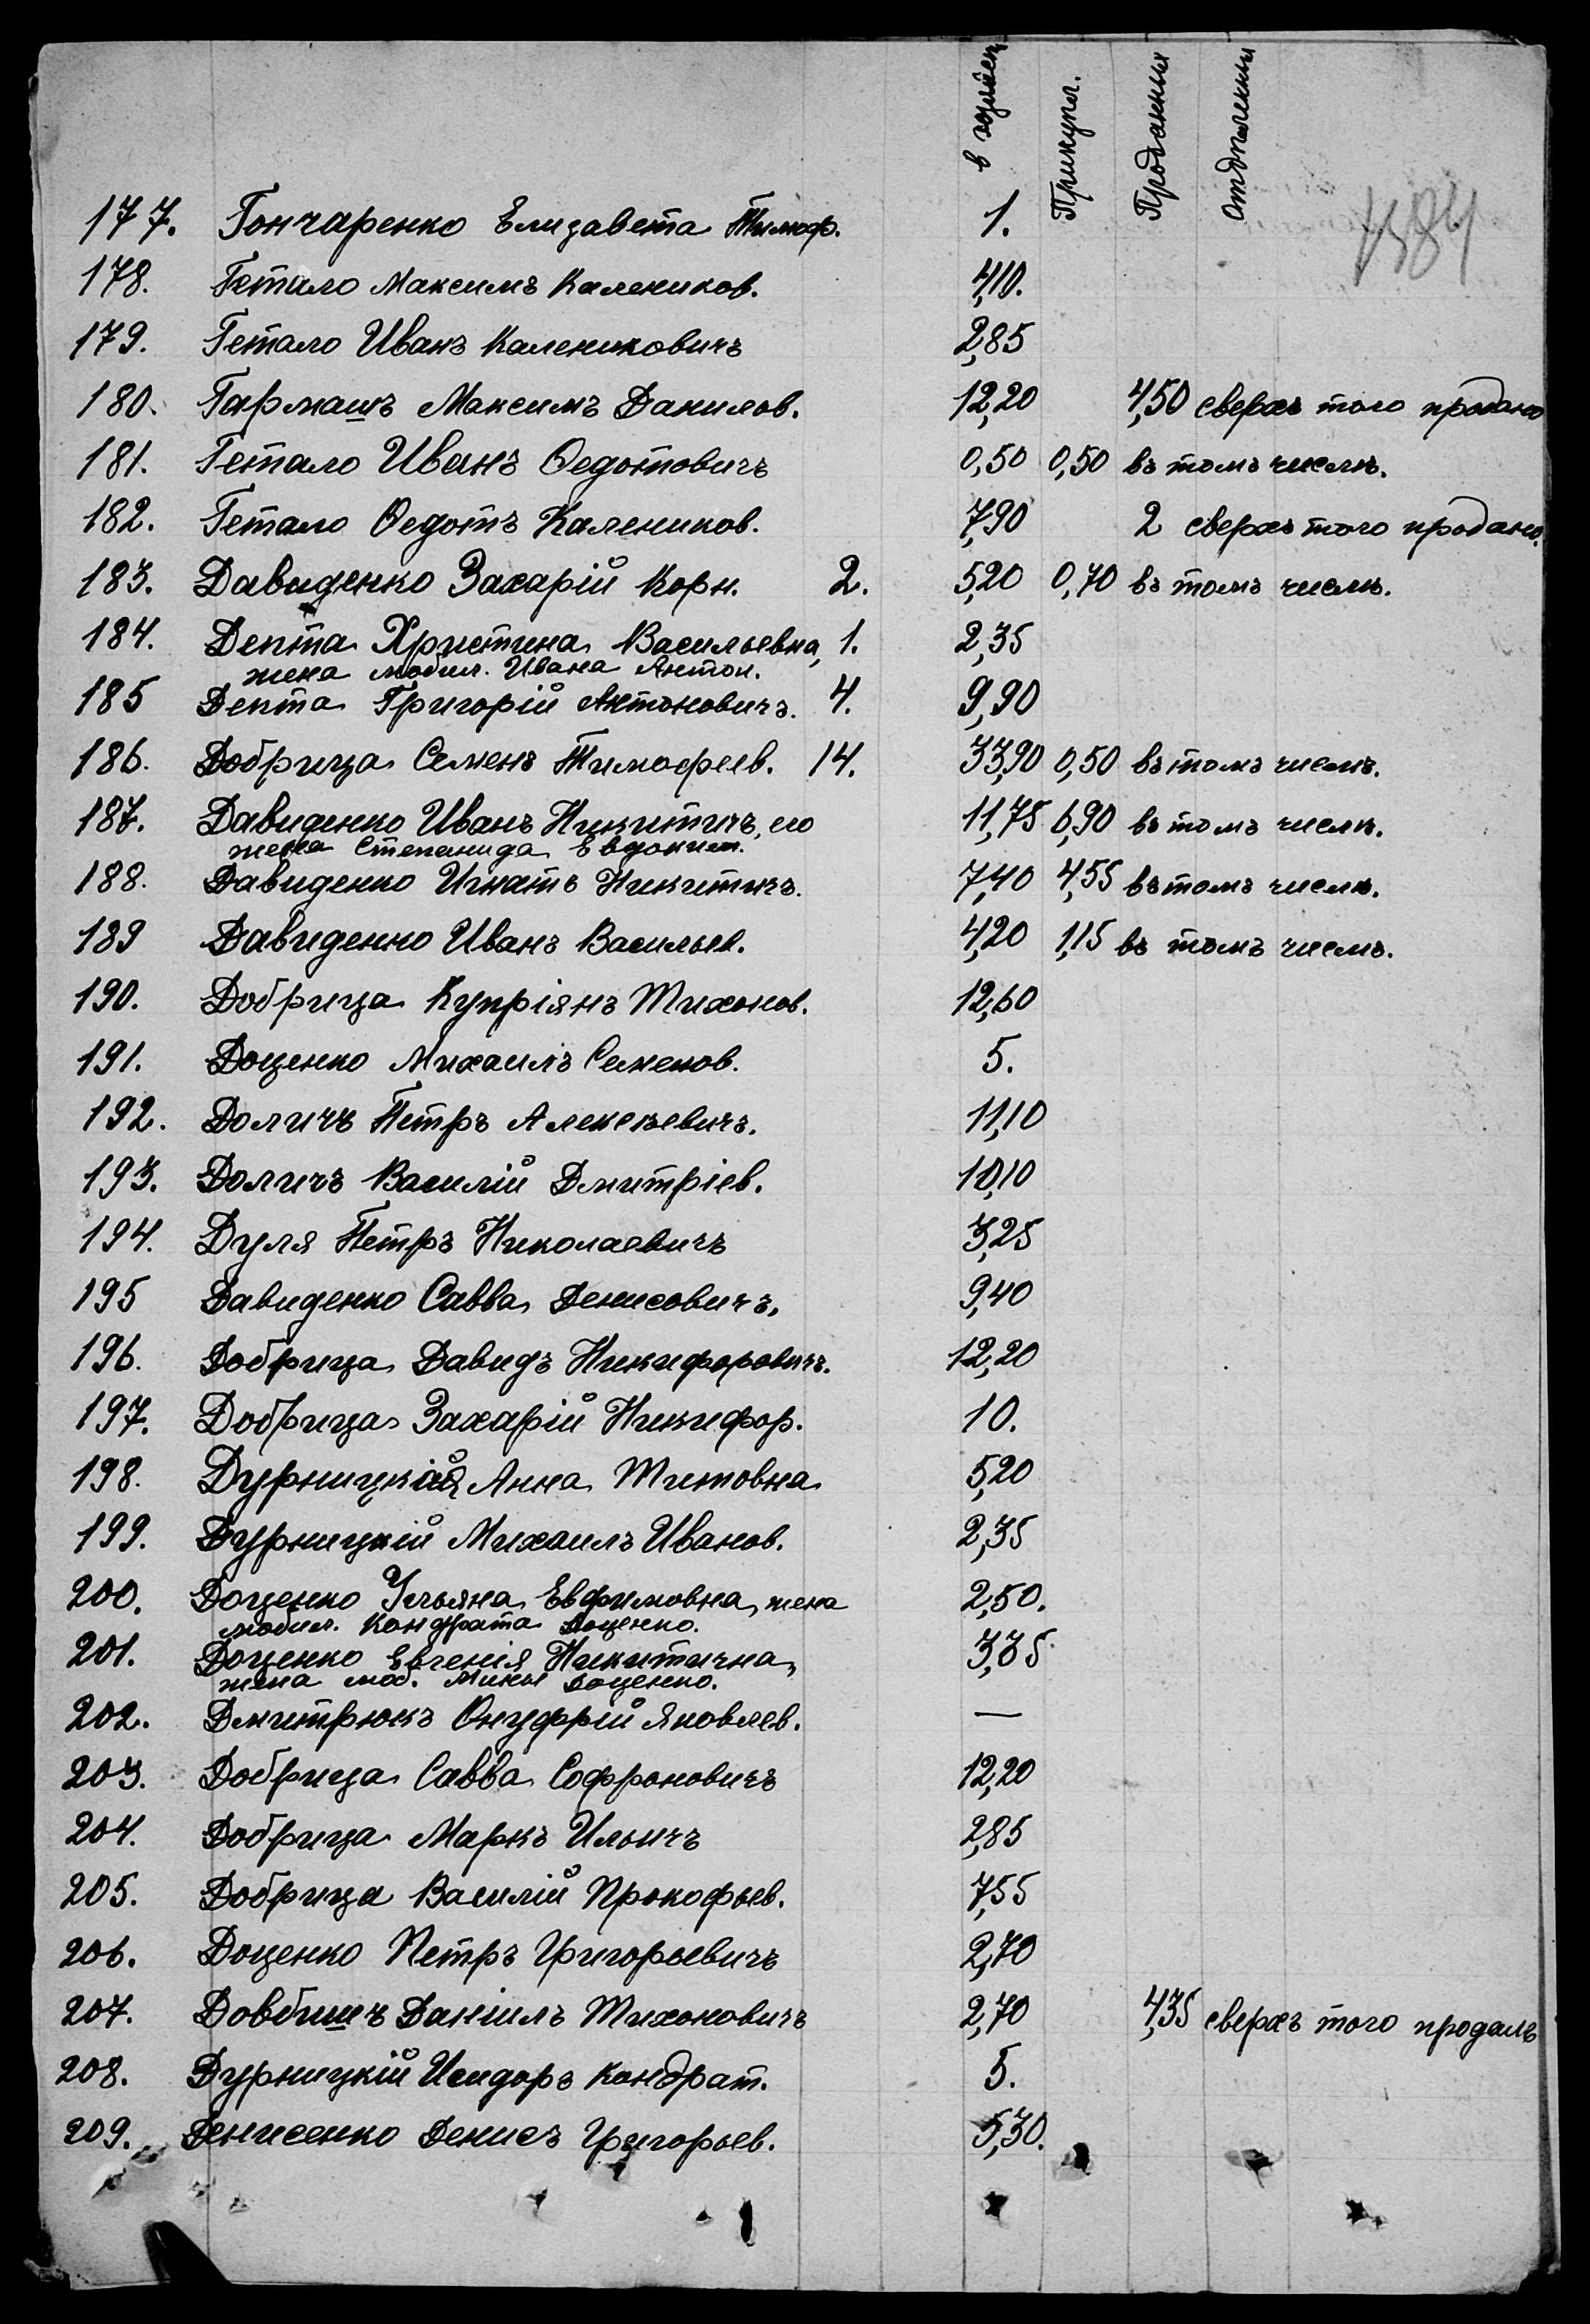 Прикупл. Проданныя
1584
177. Гончаренко Елизавета Тимоф. 1.
178. Гетало Максимъ Калеников. 4,10.
179. Гетало Иванъ Калениковичъ 2,85
180. Гармашъ Максимъ Данилов. 12,20 4,50 сверхъ того продано
181. Гетало Иванъ Ѳедотовичъ 0,50 0,50 въ томъ числѣ.
182. Гетало Ѳедотъ Калеников. 7,90 2 сверхъ того продано.
183. Давиденко Захарій Корн. 2. 5,20 0,70 въ томъ числѣ.
184. Депта Христина Васильевна, 1. 2,35
жена мобил. Ивана Антон.
185 Депта Григорій Антоновичъ. 4. 9,90
186. Добрица Семенъ Тимофеев. 14. 33,90 0,50 въ томъ числѣ.
187. Давиденко Иванъ Никитичъ, его 11,75 6,90 въ томъ числѣ.
жена Степанида Евдоким.
188. Давиденко Игнатъ Никитичъ. 7,40 4,55 въ томъ числѣ.
189 Давиденко Иванъ Васильев. 4,20 1,15 въ томъ числѣ.
190. Добрица Купріянъ Тихонов. 12,60
191. Доценко Михаилъ Семенов. 5.
192. Доличъ Петръ Алексѣевичъ. 11,10
193. Доличъ Василій Дмитріев. 10,10
194. Дуля Петръ Николаевичъ 3,25
195 Давиденко Савва Денисовичъ, 9,40
196. Добрица Давидъ Никифоровичъ. 12,20
197. Добрица Захарій Никифор. 10.
198. Дурницкая Анна Титовна 5,20
199. Дурницкій Михаилъ Иванов. 2,35
200. Доценко Ульяна Евфимовна, жена 2,50.
мобил. Кондрата Доценко.
201. Доценко Евгенія Никитична, 3,35.
жена моб. Мины Доценко.
202. Дмитрюкъ Онуфрій Яковлев. —
203. Добрица Савва Софроновичъ 12,20
204. Добрица Маркъ Ильичъ 2,85
205. Добрица Василій Прокофьев. 7,55
206. Доценко Петръ Григорьевичъ 2,70
207. Довбишъ Даніилъ Тихоновичъ 2,70 4,35 сверхъ того продалъ
208. Дурницкій Исидоръ Кондрат. 5.
209. Денисенко Денисъ Григорьев. 5,30.